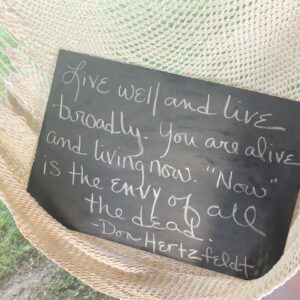 Live well and live
broadly. You are alive
and living now. "Now"
is the envy of all
the dead.
-Don Hertzfeldt